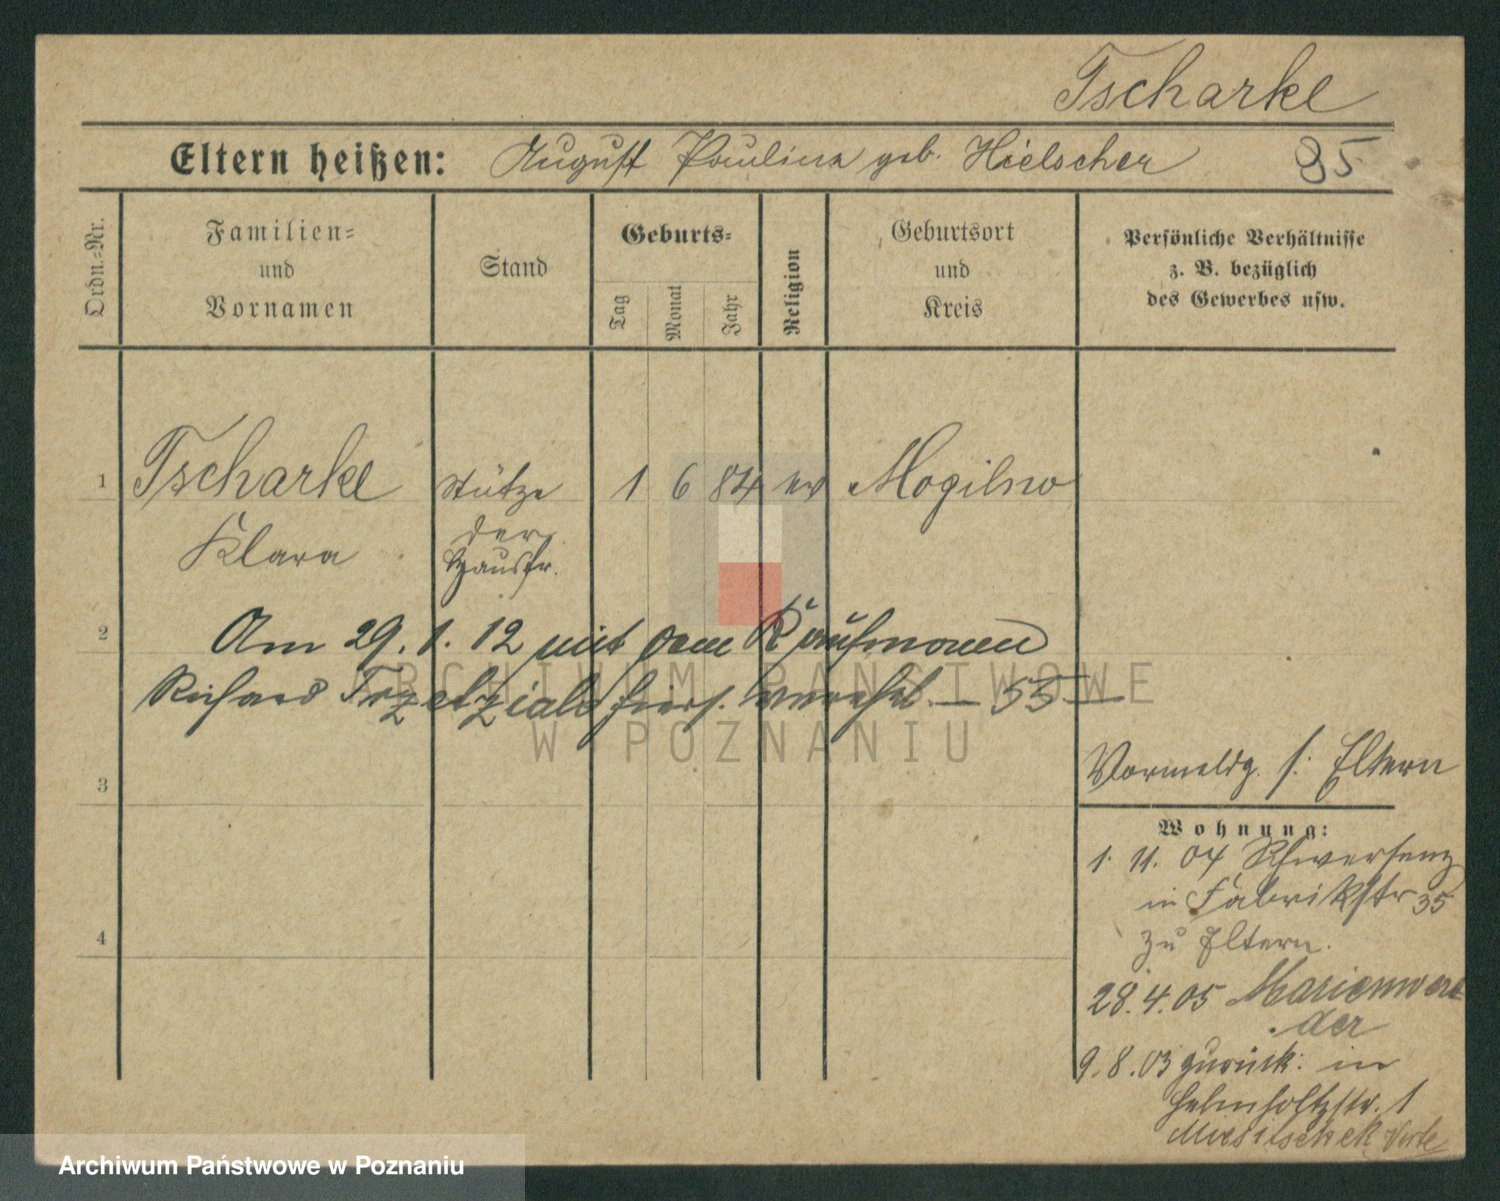 Tscharke
Eltern heißen: August Pauline geb. Hielscher 85
Ordn.-Nr.
Familien-
und
Vornamen
Stand
Geburts-
Tag
Monat
Jahr
Religion
Geburtsort
und
Kreis
Persönliche Verhältnisse
z. B. bezüglich
des Gewerbes usw.
1 Tscharke Stütze 1 6 84 ev Mogilno
Klara der
Hausfr.
2 Am 29.1.12 mit dem Kaufmann
Richard hiers. verehel. — 55 —
Vormeldg. s. Eltern
3
Wohnung:
1. 11. 04 Schwersenz
in Fabrikstr 35
zu Eltern.
4
28.4.05 Marienwer
der
9.8.05 zurück: in
Helmholtzstr. 1
ARCHIWUM PAŃSTWOWE
W POZNANIU
Archiwum Państwowe w Poznaniu